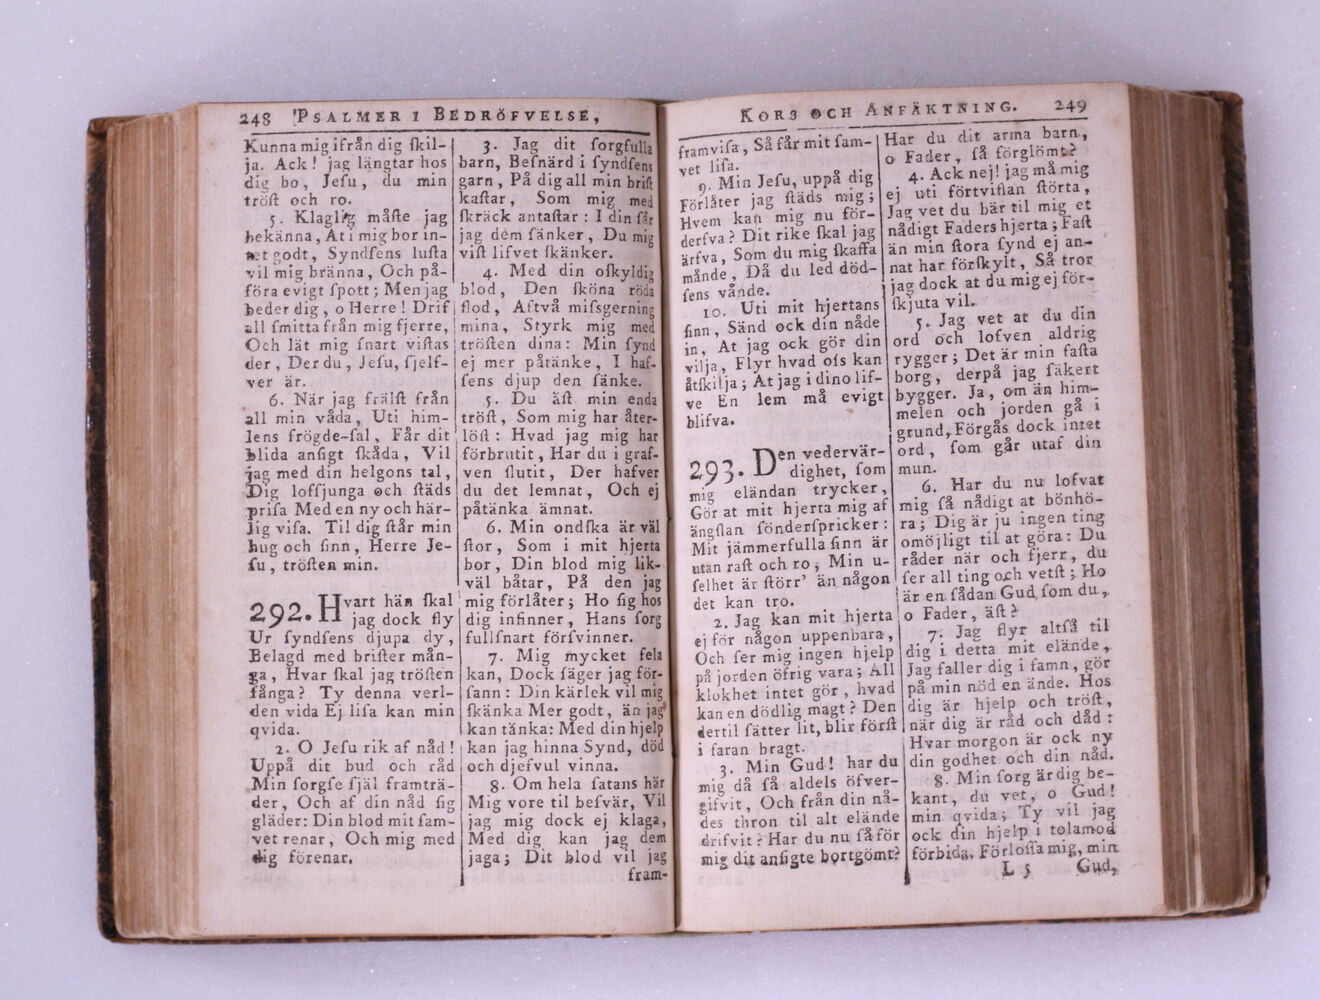 248 PSALMER I BEDRÖFVELSE,
Kunna mig ifrån dig ſkil-
ja. Ack! jag längtar hos
dig bo, Jeſu, du min
tröſt och ro.
5. Klaglig måſte jag
bekänna, At i mig bor in-
tet godt, Syndſens luſta
vil mig bränna, Och på-
föra evigt ſpott; Men jag
beder dig, o Herre! Drif
all ſmitta från mig fjerre,
Och lät mig ſnart viſtas
der, Der du, Jeſu, ſjelf-
ver är.
6. När jag frälſt från
all min våda, Uti him-
lens frögde-ſal, Får dit
blida anſigt ſkåda, Vil
jag med din helgons tal,
Dig loffjunga och ſtäds
priſa Med en ny och här-
lig viſa. Til dig ſtår min
hug och ſinn, Herre Je-
ſu, tröſten min.
292. Hvart hän ſkal
jag dock fly
Ur ſyndſens djupa dy,
Belagd med briſter mån-
ga, Hvar ſkal jag tröſten
fånga? Ty denna verl-
den vida Ej liſa kan min
qvida.
2. O Jeſu rik af nåd!
Uppå dit bud och råd
Min ſorgſe ſjäl framträ-
der, Och af din nåd ſig
gläder: Din blod mit ſam-
vet renar, Och mig med
dig förenar.
3. Jag dit ſorgfulla
barn, Beſnärd i ſyndſens
garn, På dig all min briſt
kaſtar, Som mig med
ſkräck antaſtar: I din ſår
jag dem ſänker, Du mig
viſt lifvet ſkänker.
4. Med din oſkyldig
blod, Den ſköna röda
flod, Aftvå miſsgerning
mina, Styrk mig med
tröſten dina: Min ſynd
ej mer påtänke, I haf-
ſens djup den ſänke.
5. Du äſt min enda
tröſt, Som mig har åter-
löſt: Hvad jag mig har
förbrutit, Har du i graf-
ven ſlutit, Der hafver
du det lemnat, Och ej
påtänka ämnat.
6. Min ondſka är väl
ſtor, Som i mit hjerta
bor, Din blod mig lik-
väl båtar, På den jag
mig förlåter; Ho ſig hos
dig infinner, Hans ſorg
fullſnart förſvinner.
7. Mig mycket fela
kan, Dock ſäger jag för-
ſann: Din kärlek vil mig
ſkänka Mer godt, än jag
kan tänka: Med din hjelp
kan jag hinna Synd, död
och djefvul vinna.
8. Om hela ſatans här
Mig vore til beſvär, Vil
jag mig dock ej klaga,
Med dig kan jag dem
jaga; Dit blod vil jag
fram-
KORS OCH ANFÄKTNING. 249
framviſa, Så får mit ſam-
vet liſa.
9. Min Jeſu, uppå dig
Förlåter jag ſtäds mig;
Hvem kan mig nu för-
derfva? Dit rike ſkal jag
ärfva, Som du mig ſkaffa
månde, Då du led död-
ſens vånde.
10. Uti mit hjertans
ſinn, Sänd ock din nåde
in, At jag ock gör din
vilja, Flyr hvad oſs kan
åtſkilja; At jag i dino lif-
ve En lem må evigt
blifva.
293. Den vedervär-
dighet, ſom
mig eländan trycker,
Gör at mit hjerta mig af
ängſlan ſönderſpricker:
Mit jämmerfulla ſinn är
utan raſt och ro, Min u-
ſelhet är ſtörr' än någon
det kan tro.
2. Jag kan mit hjerta
ej för någon uppenbara,
Och ſer mig ingen hjelp
på jorden öfrig vara; All
klokhet intet gör, hvad
kan en dödlig magt? Den
dertil ſätter lit, blir förſt
i faran bragt.
3. Min Gud! har du
mig då ſå aldels öfver-
gifvit, Och från din nå-
des thron til alt elände
drifvit? Har du nu ſå för
mig dit anſigte bortgömt?
Har du dit arma barn,
o Fader, ſå förglömt?
4. Ack nej! jag må mig
ej uti förtviflan ſtörta,
Jag vet du bär til mig et
nådigt Faders hjerta; Faſt
än min ſtora ſynd ej an-
nat har förſkylt, Så tror
jag dock at du mig ej för-
ſkjuta vil.
5. Jag vet at du din
ord och lofven aldrig
rygger; Det är min faſta
borg, derpå jag ſäkert
bygger. Ja, om än him-
melen och jorden gå i
grund, Förgås dock intet
ord, ſom går utaf din
mun.
6. Har du nu lofvat
mig ſå nådigt at bönhö-
ra; Dig är ju ingen ting
omöjligt til at göra: Du
råder när och fjerr, du
ſer all ting och vetſt; Ho
är en ſådan Gud ſom du,
o Fader, äſt?
7. Jag flyr altſå til
dig i detta mit elände,
Jag faller dig i famn, gör
på min nöd en ände. Hos
dig är hjelp och tröſt,
när dig är råd och dåd:
Hvar morgon är ock ny
din godhet och din nåd.
8. Min ſorg är dig be-
kant, du vet, o Gud!
min qvida; Ty vil jag
ock din hjelp i tolamod
förbida. Förloſſa mig, min
L 5 Gud,